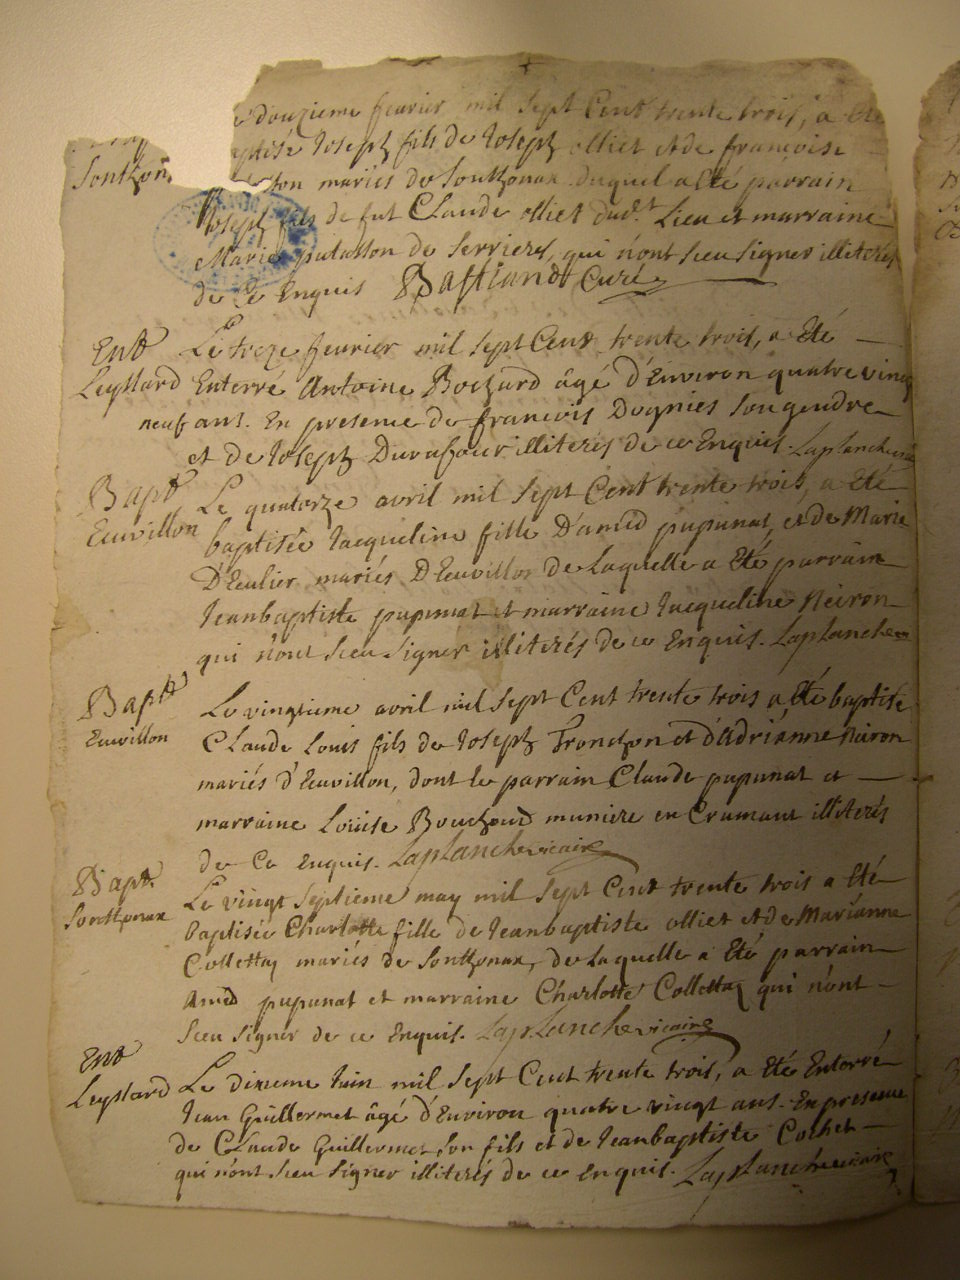 douzieme fevrier mil sept Cent trente trois, a Eté
Joseph fils de Joseph olliet et de françoise
Sonthon
mariés de Sonthonax duquel a Eté parrain
Joseph fils de fut CLaude olliet dud.t Lieu et marraine
Marie putasson de Serrieres, qui n'ont sceu signer illiterés
de ce Enquis Curé
Ent
Le treze fevrier mil sept Cent trente trois, a Eté
Leyssard Enterré Antoine Bochard âgé d'Environ quatre vingt
neuf ans. En presence de francois Dognies son gendre
et de Joseph Durafour illiterés de ce Enquis. Laplanche
Bapt
Le quatorze avril mil sept Cent trente trois, a Eté
Euvillon
baptisée Jacqueline fille D'amed pupunat, et de Marie
D'Eulier mariés D'Euvillon de Laquelle a Eté parrain
Jeanbaptiste pupunat et marraine Jacqueline Neiron
qui n'ont sceu signer illiterés de ce Enquis. LapLanche
Bapt
Le vingtieme avril mil sept Cent trente trois a Eté baptisé
Euvillon
CLaude Louis fils de Joseph Tronchon et d'Adrianne Neiron
mariés d'Euvillon, dont le parrain Claude pupunat et
marraine Louise Bouchard muniere en Cramant illiterés
de Ce Enquis. LapLanche vicaire
Bapt.
Le vingt septieme may mil sept Cent trente trois a Eté
Sonthonax
baptisée Charlotte fille de Jeanbaptiste olliet et de Marianne
Collettaz mariés de Sonthonax, de Laquelle a Eté parrain
Amed pupunat et marraine Charlotte Collettaz qui n'ont
sceu signer de ce Enquis. LapLanche vicaire
Ent
Leyssard Le dixieme Juin mil sept Cent trente trois, a Eté Enterré
Jean Guillermet âgé d'Environ quatre vingt ans. En presence
de CLaude Guillermet son fils et de Jeanbaptiste Cochet
qui n'ont sceu signer illiterés de ce Enquis. LapLanche vicaire